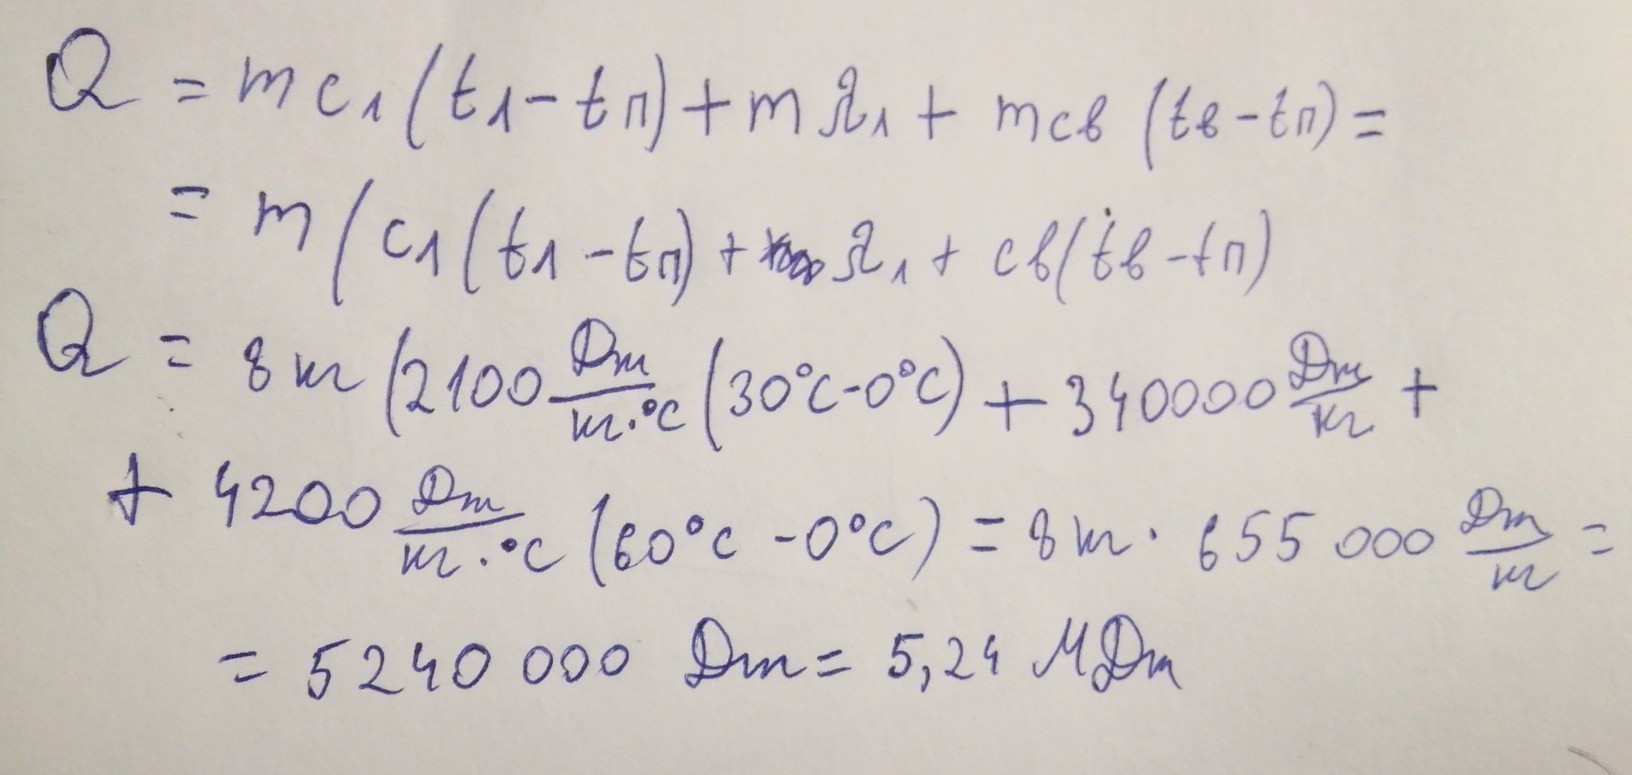 Q = mc₁(t₁-tп)+mλ₁+mcв(tв-tп)=
= m(c₁(t₁-tп)+λ₁+cв(tв-tп)
Q = 8кг(2100 Дж/кг·°C(30°C-0°C)+340000 Дж/кг+
+ 4200 Дж/кг·°C(60°C-0°C)=8кг·655 000 Дж/кг=
= 5240 000 Дж= 5,24 МДж